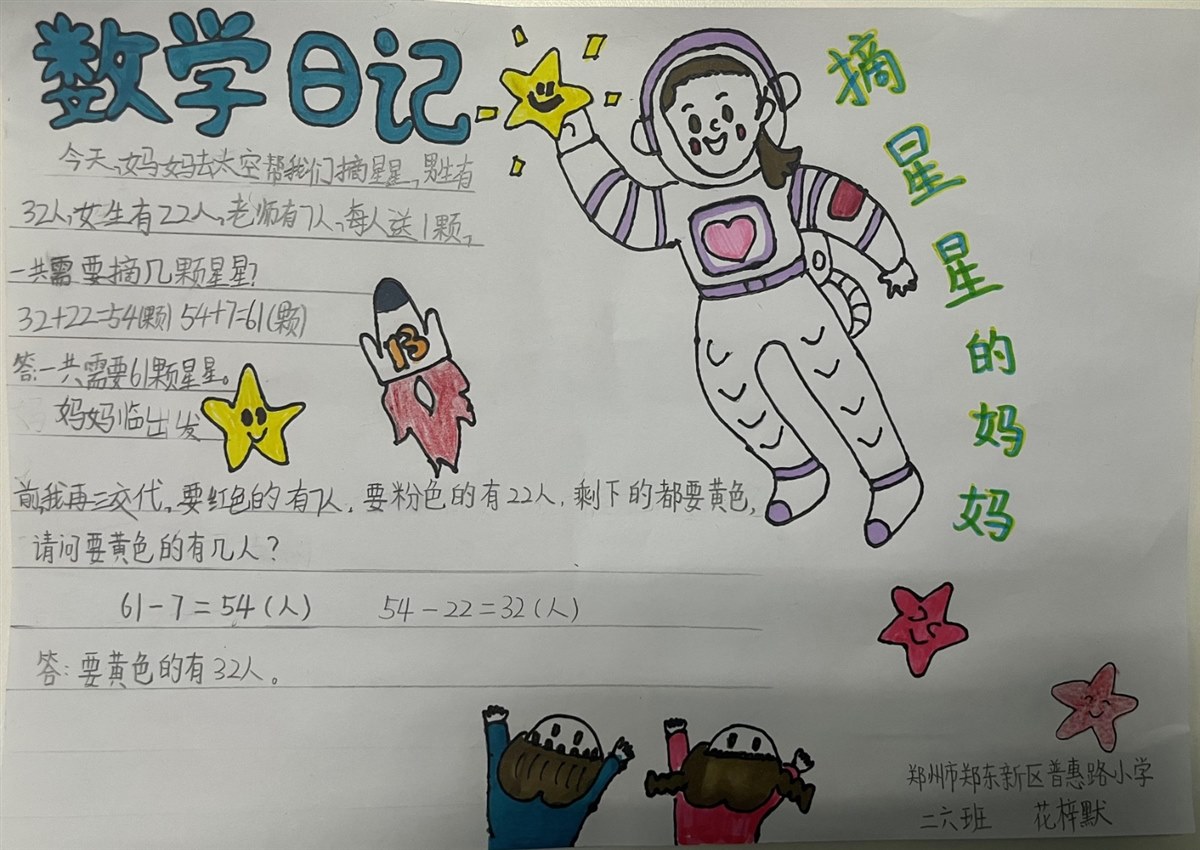 数学日记
今天,妈妈去太空帮我们摘星星,男生有
32人,女生有22人,老师有7人,每人送1颗,
一共需要摘几颗星星?
32+22=54(颗) 54+7=61(颗)
答:一共需要61颗星星。
妈妈临出发
前,我再三交代,要红色的有7人,要粉色的有22人,剩下的都要黄色,
请问要黄色的有几人?
61-7=54(人) 54-22=32(人)
答:要黄色的有32人。
13
摘星星的妈妈
郑州市郑东新区普惠路小学
二六班 花梓默